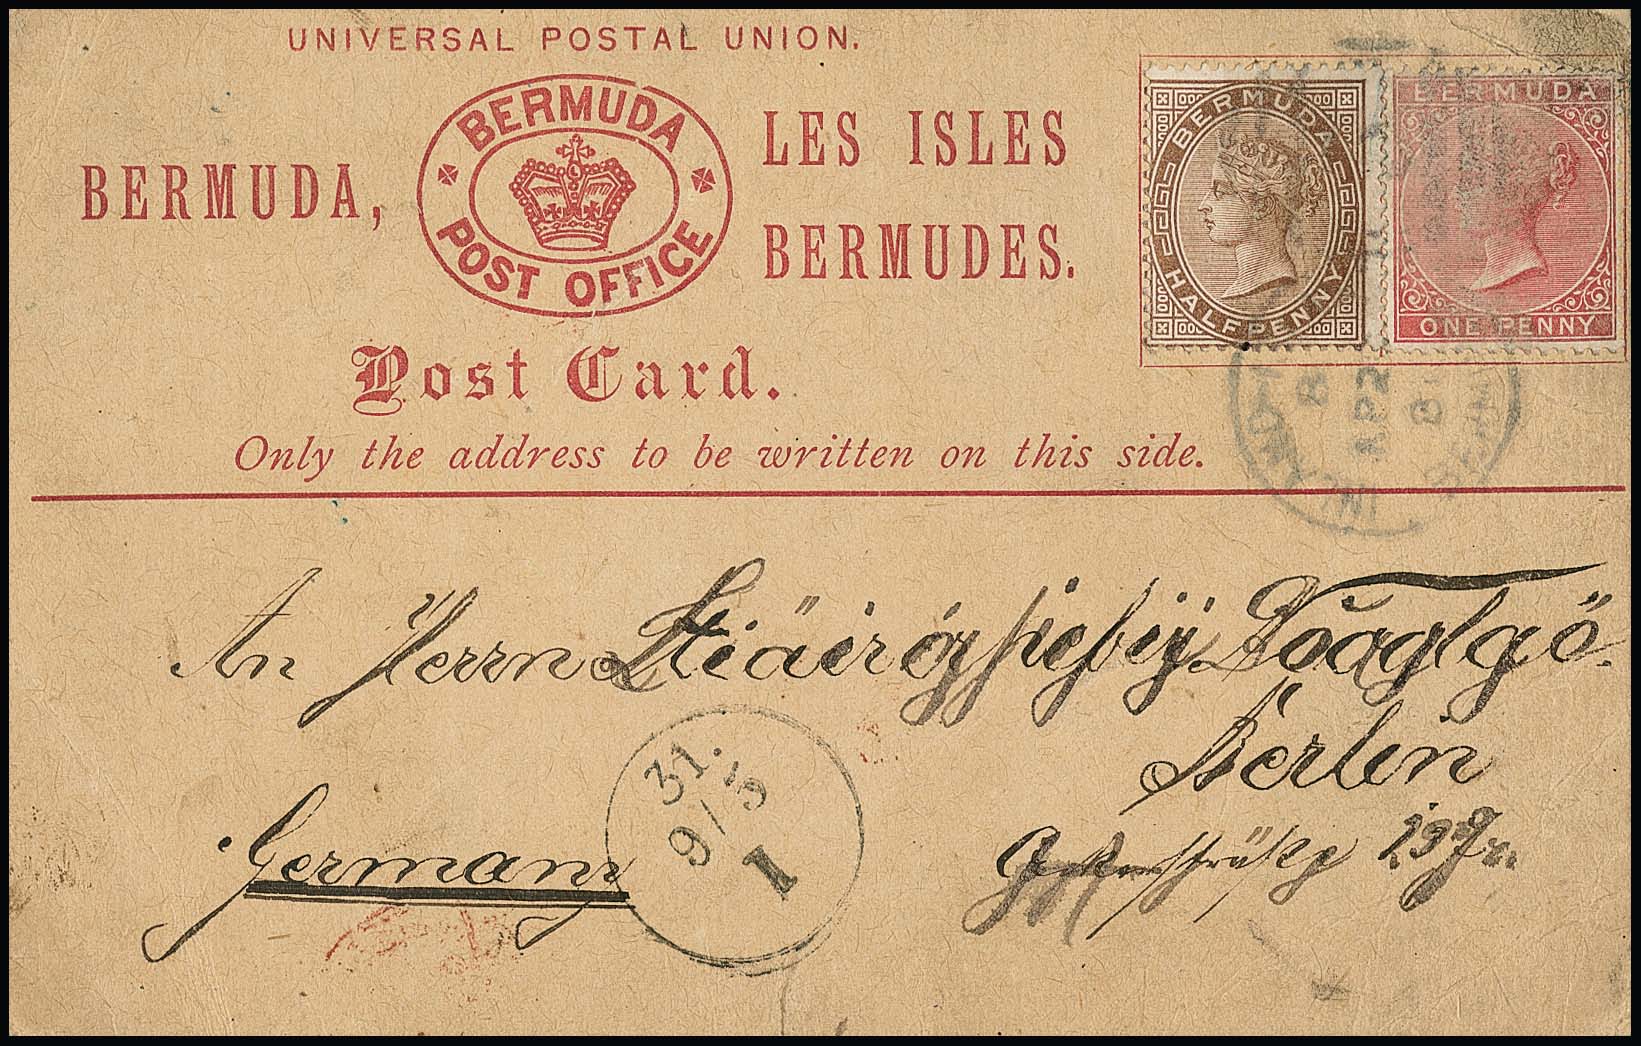 UNIVERSAL POSTAL UNION.
BERMUDA
POST OFFICE
BERMUDA,
LES ISLES
BERMUDES.
BERMUDA
HALFPENNY
BERMUDA
ONE PENNY
Post Card.
Only the address to be written on this side.
AP 2
An Herrn
Berlin
Germany
31.
9/5
1